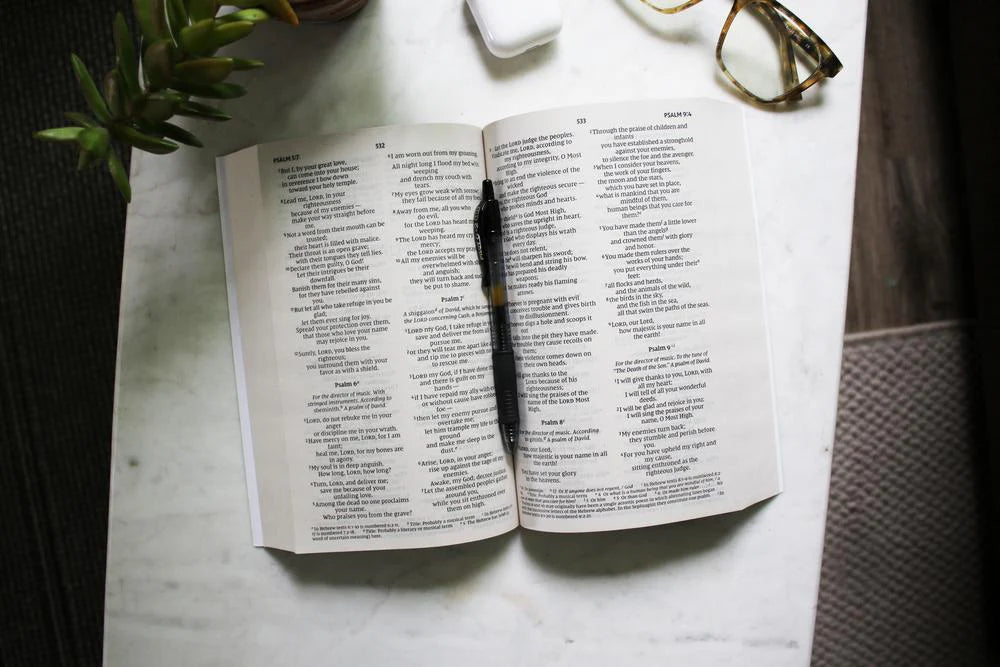 PSALM 5:7
532
⁷But I, by your great love,
can come into your house;
in reverence I bow down
toward your holy temple.
⁸Lead me, LORD, in your
righteousness
because of my enemies —
make your way straight before
me.
⁹Not a word from their mouth can be
trusted;
their heart is filled with malice.
Their throat is an open grave;
with their tongues they tell lies.
¹⁰Declare them guilty, O God!
Let their intrigues be their
downfall.
Banish them for their many sins,
for they have rebelled against
you.
¹¹But let all who take refuge in you be
glad;
let them ever sing for joy.
Spread your protection over them,
that those who love your name
may rejoice in you.
¹²Surely, LORD, you bless the
righteous;
you surround them with your
favor as with a shield.
Psalm 6
For the director of music. With
stringed instruments. According to
sheminith. A psalm of David.
¹LORD, do not rebuke me in your
anger
or discipline me in your wrath.
²Have mercy on me, LORD, for I am
faint;
heal me, LORD, for my bones are
in agony.
³My soul is in deep anguish.
How long, LORD, how long?
⁴Turn, LORD, and deliver me;
save me because of your
unfailing love.
⁵Among the dead no one proclaims
your name.
Who praises you from the grave?
⁶I am worn out from my groaning.
All night long I flood my bed with
weeping
and drench my couch with
tears.
⁷My eyes grow weak with sorrow;
they fail because of all my
⁸Away from me, all you who
do evil,
for the LORD has heard my
weeping.
⁹The LORD has heard my
mercy;
the LORD accepts my
¹⁰All my enemies will be
overwhelmed with
and anguish;
they will turn back and
be put to shame.
Psalm 7
A shiggaion of David, which he
the LORD concerning Cush, a
¹LORD my God, I take refuge
save and deliver me from
pursue me,
²or they will tear me apart like
and rip me to pieces with
to rescue me.
³LORD my God, if I have done
and there is guilt on my
hands —
⁴if I have repaid my ally with
or without cause have
foe —
⁵then let my enemy pursue and
overtake me;
let him trample my life to
ground
and make me sleep in the
dust.
⁶Arise, LORD, in your anger;
rise up against the rage of my
enemies.
Awake, my God; decree
⁷Let the assembled peoples gather
around you,
while you sit enthroned over
them on high.
In Hebrew texts 6:1-10 is numbered 6:2-11.
Title: Probably a musical term
In Hebrew
7:1-17 is numbered 7:2-18.
Title: Probably a literary or musical term
word of uncertain meaning) here.
533
PSALM 9:4
Let the LORD judge the peoples.
Vindicate me, LORD, according to
my righteousness,
according to my integrity, O Most
High.
to an end the violence of the
wicked
and make the righteous secure —
the righteous God
who probes minds and hearts.
is God Most High,
who saves the upright in heart.
is a righteous judge,
God who displays his wrath
every day.
he does not relent,
will sharpen his sword;
will bend and string his bow.
has prepared his deadly
weapons;
he makes ready his flaming
arrows.
is pregnant with evil
conceives trouble and gives birth
to disillusionment.
digs a hole and scoops it
out
falls into the pit they have made.
The trouble they cause recoils on
them;
their violence comes down on
their own heads.
give thanks to the
LORD because of his
righteousness;
sing the praises of the
name of the LORD Most
High.
Psalm 8
For the director of music. According
to gittith. A psalm of David.
LORD, our Lord,
how majestic is your name in all
the earth!
You have set your glory
in the heavens.
²Through the praise of children and
infants
you have established a stronghold
against your enemies,
to silence the foe and the avenger.
³When I consider your heavens,
the work of your fingers,
the moon and the stars,
which you have set in place,
⁴what is mankind that you are
mindful of them,
human beings that you care for
them?
⁵You have made them a little lower
than the angels
and crowned them with glory
and honor.
⁶You made them rulers over the
works of your hands;
you put everything under their
feet:
⁷all flocks and herds,
and the animals of the wild,
⁸the birds in the sky,
and the fish in the sea,
all that swim the paths of the seas.
⁹LORD, our Lord,
how majestic is your name in all
the earth!
Psalm 9
For the director of music. To the tune of
“The Death of the Son.” A psalm of David.
¹I will give thanks to you, LORD, with
all my heart;
I will tell of all your wonderful
deeds.
²I will be glad and rejoice in you;
I will sing the praises of your
name, O Most High.
³My enemies turn back;
they stumble and perish before
you.
⁴For you have upheld my right and
my cause,
sitting enthroned as the
righteous judge.